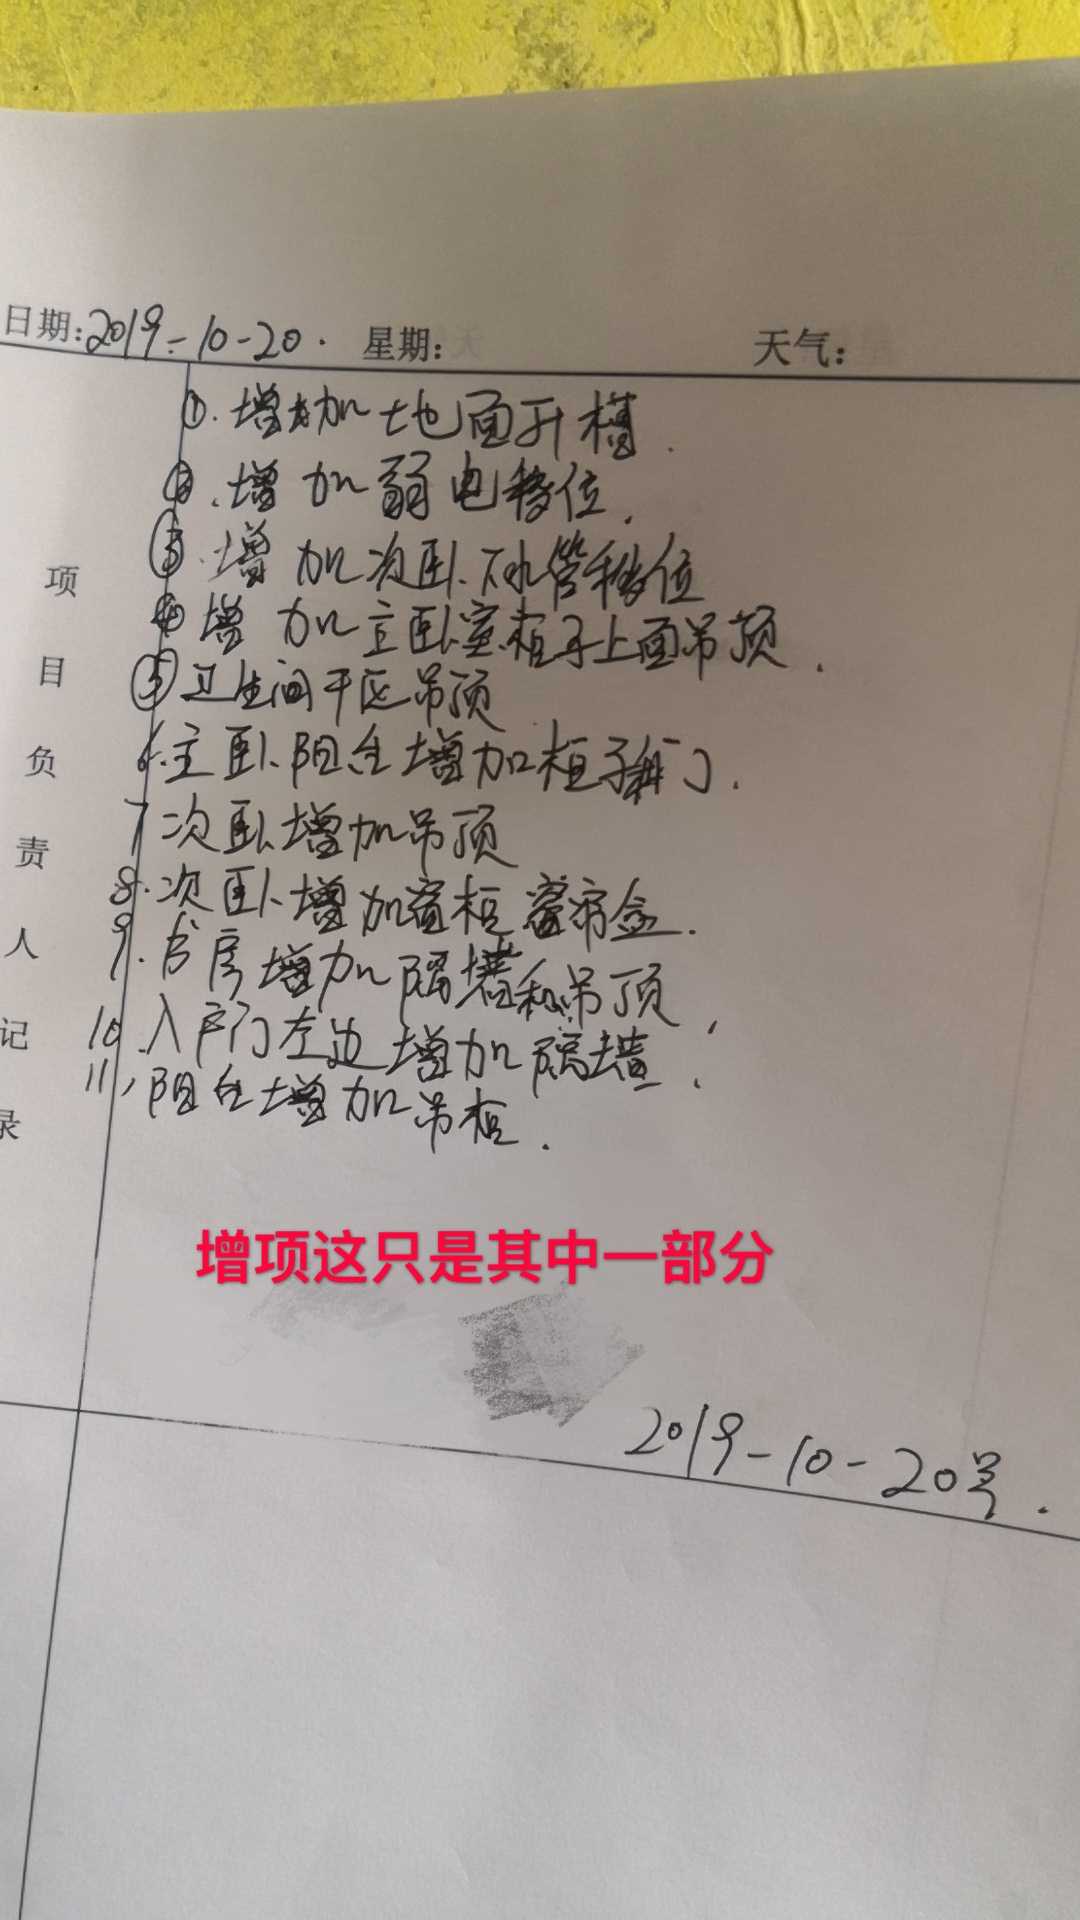 日期:2019-10-20. 星期: 天气:
①.增加地面开槽.
②.增加弱电移位.
③.增加次卧下水管移位
④增加主卧室柜子上面吊顶.
⑤卫生间干区吊顶
6.主卧阳台增加柜子和门.
7次卧增加吊顶
8.次卧增加窗柜窗帘盒.
9.书房增加隔墙和吊顶.
10.入户门左边增加隔墙.
11,阳台增加吊柜.
项目负责人记录
增项这只是其中一部分
2019-10-20号.